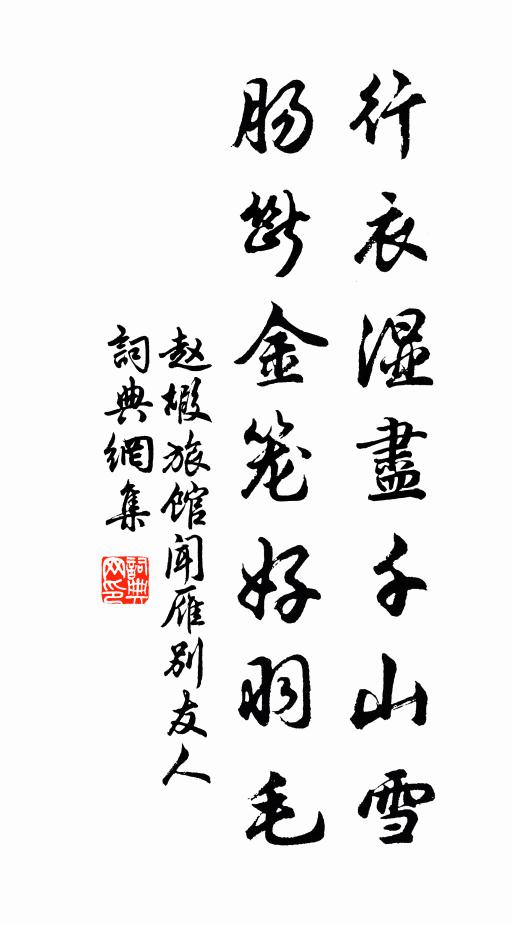 行衣湿盡千山雪
肠斷金笼好羽毛
赵嘏旅馆闻雁别友人
詞典網集
詞典网印